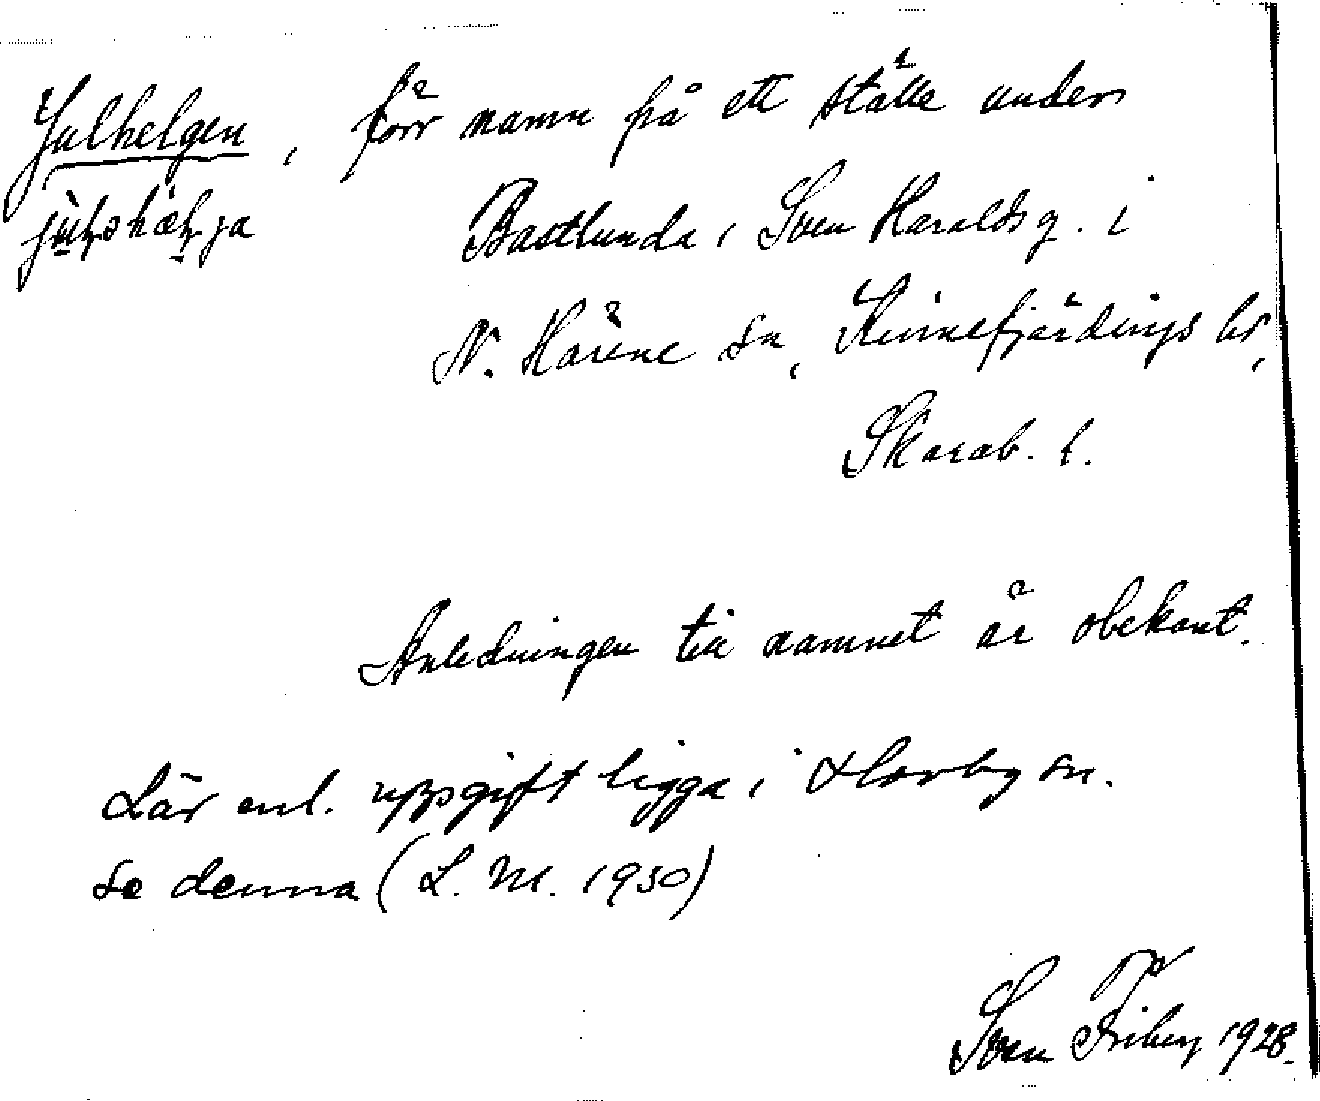 Julhelgen, förr namn på ett ställe under
Bastlunda, Sven Haraldsg. i
N. Härene sn, Kinnefjärdings hd,
Skarab. l.
Anledningen till namnet är obekant.
Lär enl. uppgift ligga i Hovby sn.
Se denna (L. M. 1930)
Sven Friberg 1928.